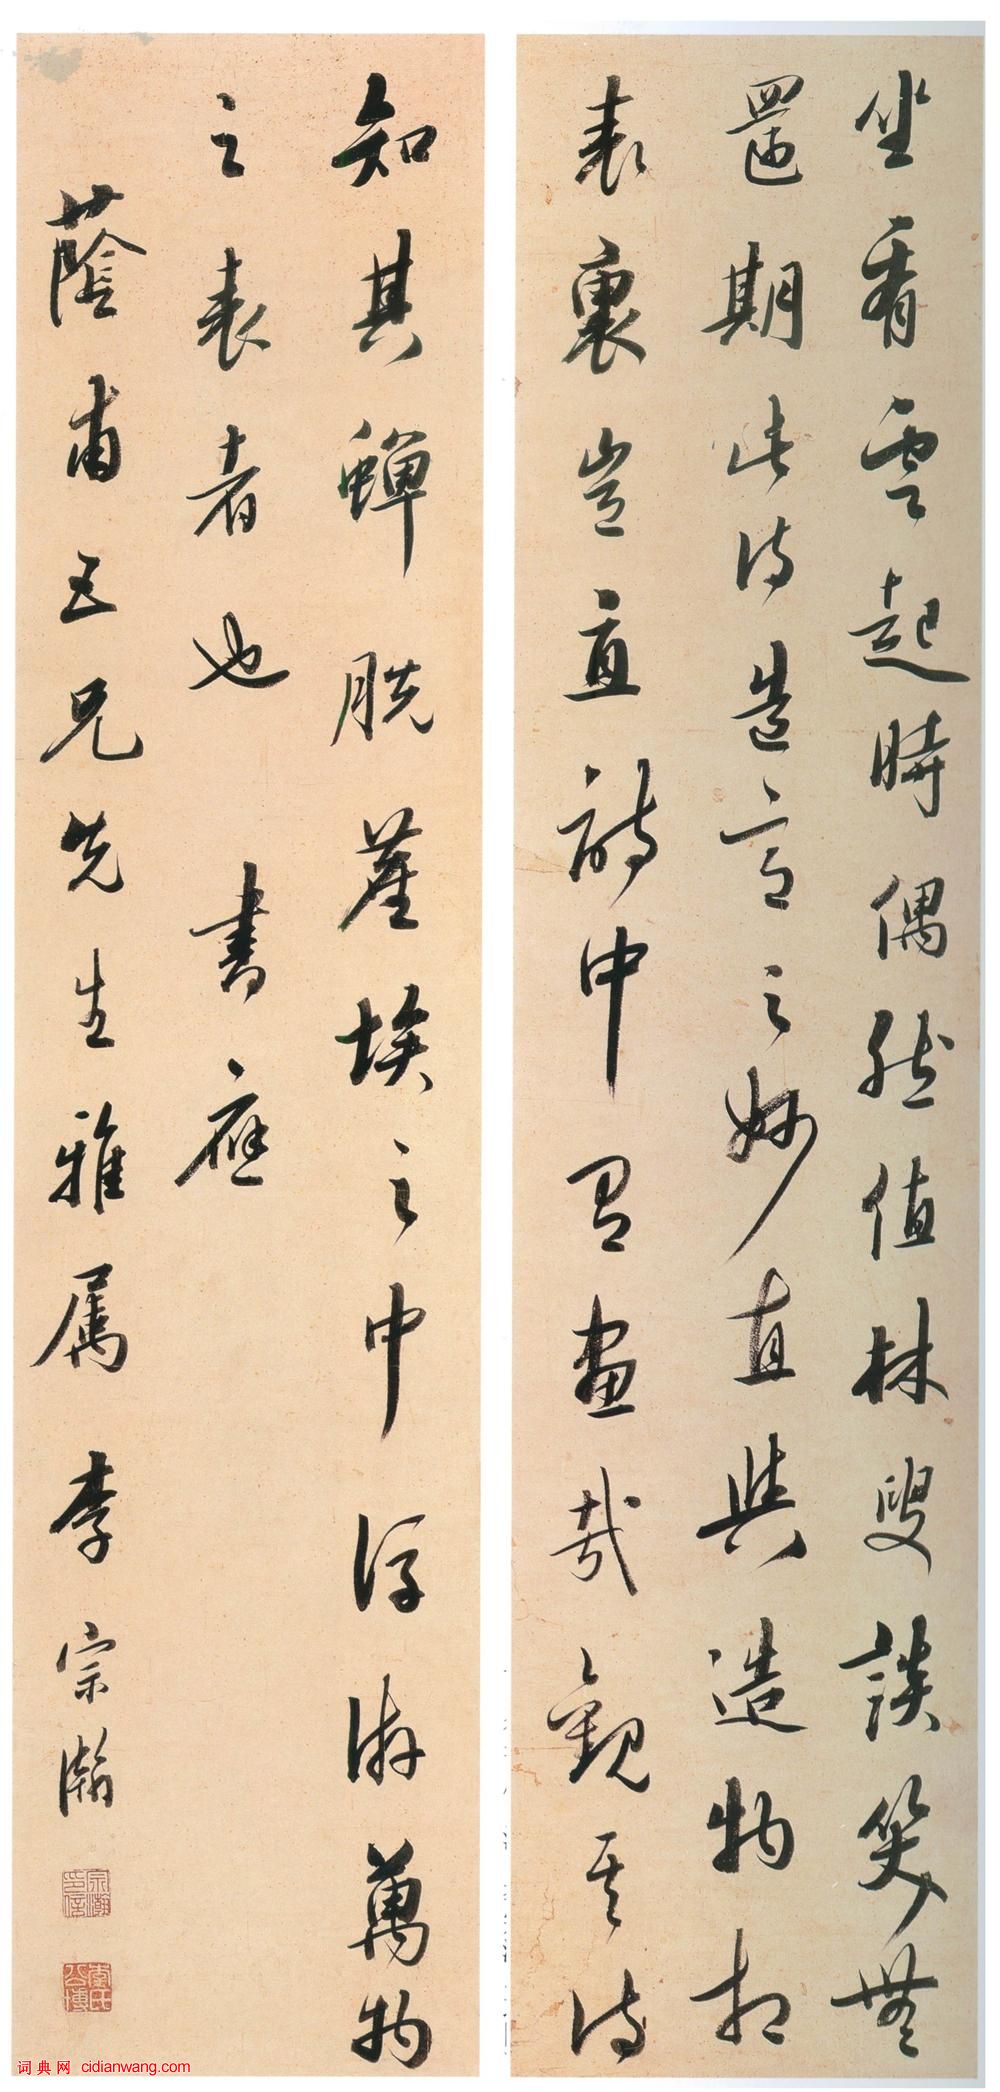 坐看雲起時偶然值林叟談笑無
還期此詩造意之妙直與造物相
表裏豈直詩中有畫哉觀其詩
知其蟬脫塵埃之中浮游萬物
之表者也 書應
蔭甫五兄先生雅屬 李宗瀚
宗瀚印信
李氏公博
词典网 cidianwang.com